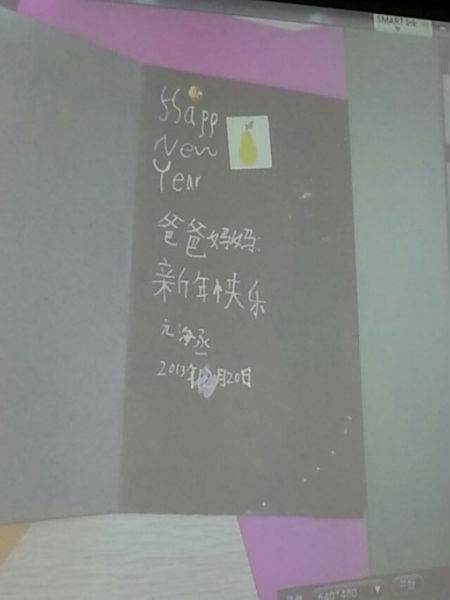 SMART Ink
Happ
New
Year
爸爸妈妈:
新年快乐
元海丞
2013年12月20日
640*480